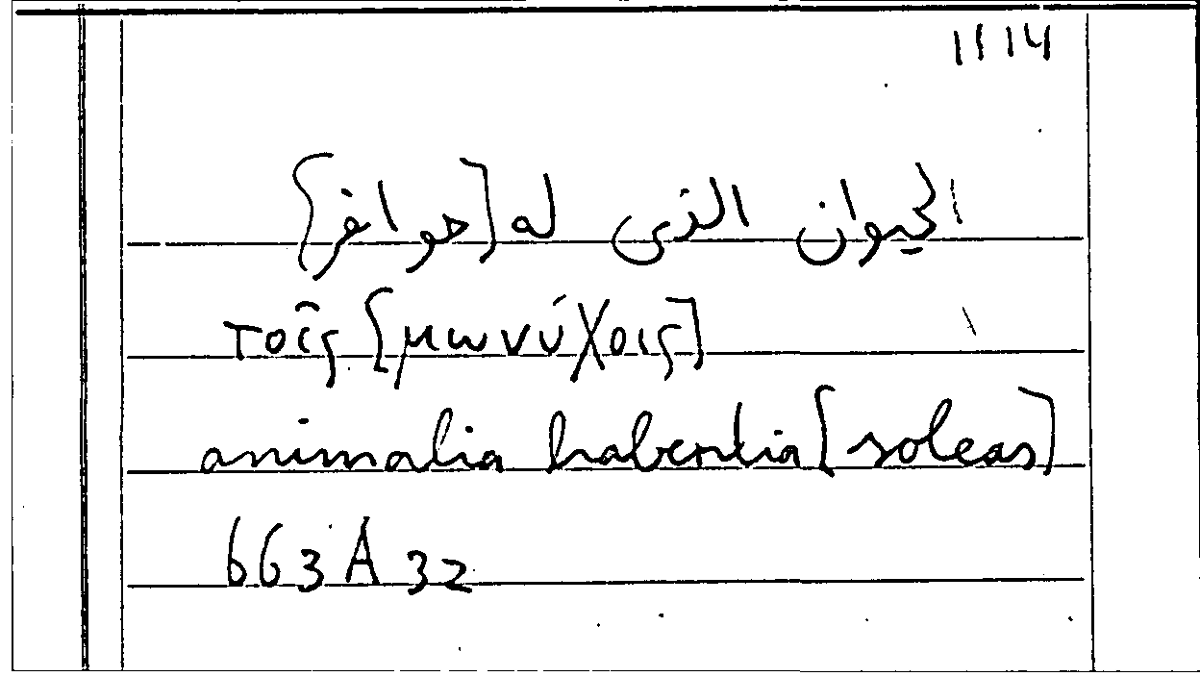 1114
الحيوان الذى له [حوافر]
τοῖς [μωνύχοις]
animalia habentia [soleas]
663A32